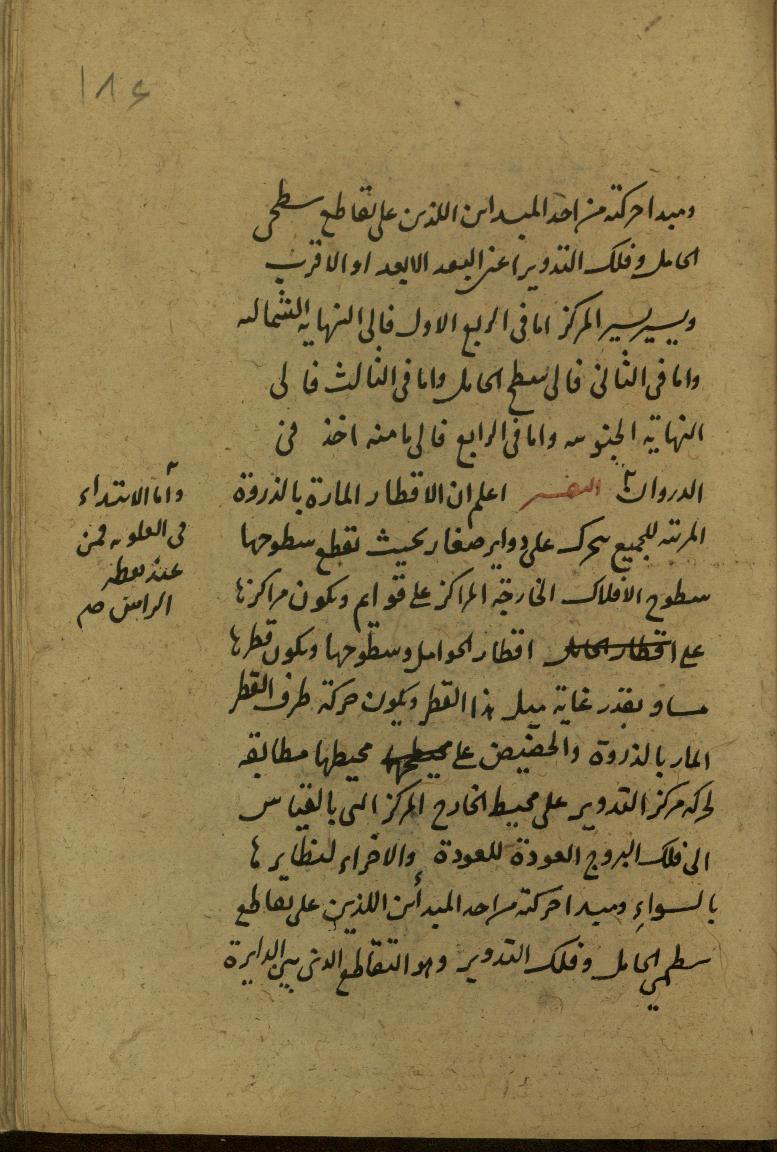 ١٨٤
ومبدا حركته من احد المبداين اللذين على تقاطع سطحى
الحامل وفلك التدوير اعنى البعد الابعد او الاقرب
ويسير بسير المركز اما فى الربع الاول فالى النهاية الشمالية
واما فى الثانى فالى سطح الحامل واما فى الثالث فالى
النهاية الجنوبية واما فى الرابع فالى ما منه اخذ فى
الدوران التفسير اعلم ان الاقطار المارة بالذروة
المرئية للجميع يتحرك على دواير صغار بحيث تقطع سطوحها
سطوح الأفلاك الخارجة المراكز على قوايم ويكون مراكزها
على اقطار الحامل اقطار الحوامل وسطوحها ويكون قطرها
مساو بقدر غاية ميل هذا القطر ويكون حركة طرف القطر
المار بالذروة والحضيض على محيطها محيطها مطابقة
لحركة مركز التدوير على محيط الخارج المركز التى بالقياس
الى فلك البروج العودة للعودة والاجزاء لنظايرها
بالسواء ومبدا حركته من احد المبدأين اللذين على تقاطع
سطحي الحامل وفلك التدوير وهو التقاطع الذى بين الدايرة
وأما الابتداء
فى العلوية فمن
عند نقطة
الراس صح